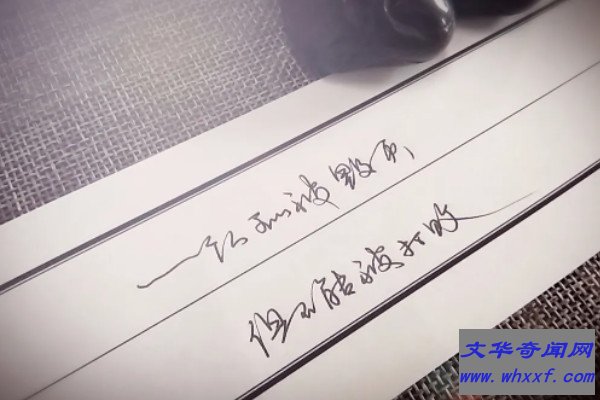 一可以被毁灭，
但不能被打败
文华奇闻网
www.whxxf.com